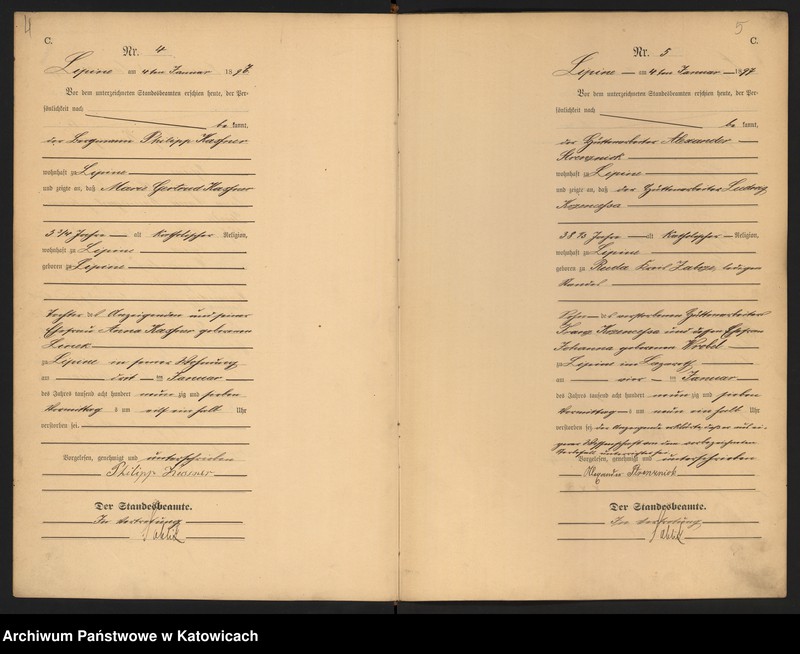 4
C.
Nr. 4
Lipine am 4ten Januar 1897
Vor dem unterzeichneten Standesbeamten erschien heute, der Per-
sönlichkeit nach
be kannt,
der Bergmann Philipp Kassner
wohnhaft zu Lipine
und zeigte an, daß Marie Gertrud Kassner
3 1/4 Jahre alt Katholischer Religion,
wohnhaft zu Lipine
geboren zu Lipine
Tochter des Anzeigenden und seiner
Ehefrau Anna Kassner geborenen
zu Lipine in seiner Wohnung
am ten Januar
des Jahres tausend acht hundert neun zig und sieben
Vormittag s um elf ein halb Uhr
verstorben sei.
Vorgelesen, genehmigt und unterschrieben
Philipp
Der Standesbeamte.
In Vertretung
5
C.
Nr. 5
Lipine am 4ten Januar 1897
Vor dem unterzeichneten Standesbeamten erschien heute, der Per-
sönlichkeit nach
be kannt,
der Hüttenarbeiter Alexander
wohnhaft zu Lipine
und zeigte an, daß der Hüttenarbeiter Ludwig
38 1/2 Jahre alt Katholischer Religion,
wohnhaft zu Lipine
geboren zu Ruda Kreis Zabrze, ledigen
Standes
Sohn des verstorbenen Hüttenarbeiters
Franz und dessen Ehefrau
Johanna geborenen Wrobel
zu Lipine im Lazareth
am vier ten Januar
des Jahres tausend acht hundert neun zig und sieben
Vormittag s um neun ein halb Uhr
verstorben sei, der Anzeigende erklärte, daß er aus ei-
gener Wissenschaft von dem vorbezeichneten
Sterbefall unterrichtet sei.
Vorgelesen, genehmigt und unterschrieben
Alexander
Der Standesbeamte.
In Vertretung
Archiwum Państwowe w Katowicach